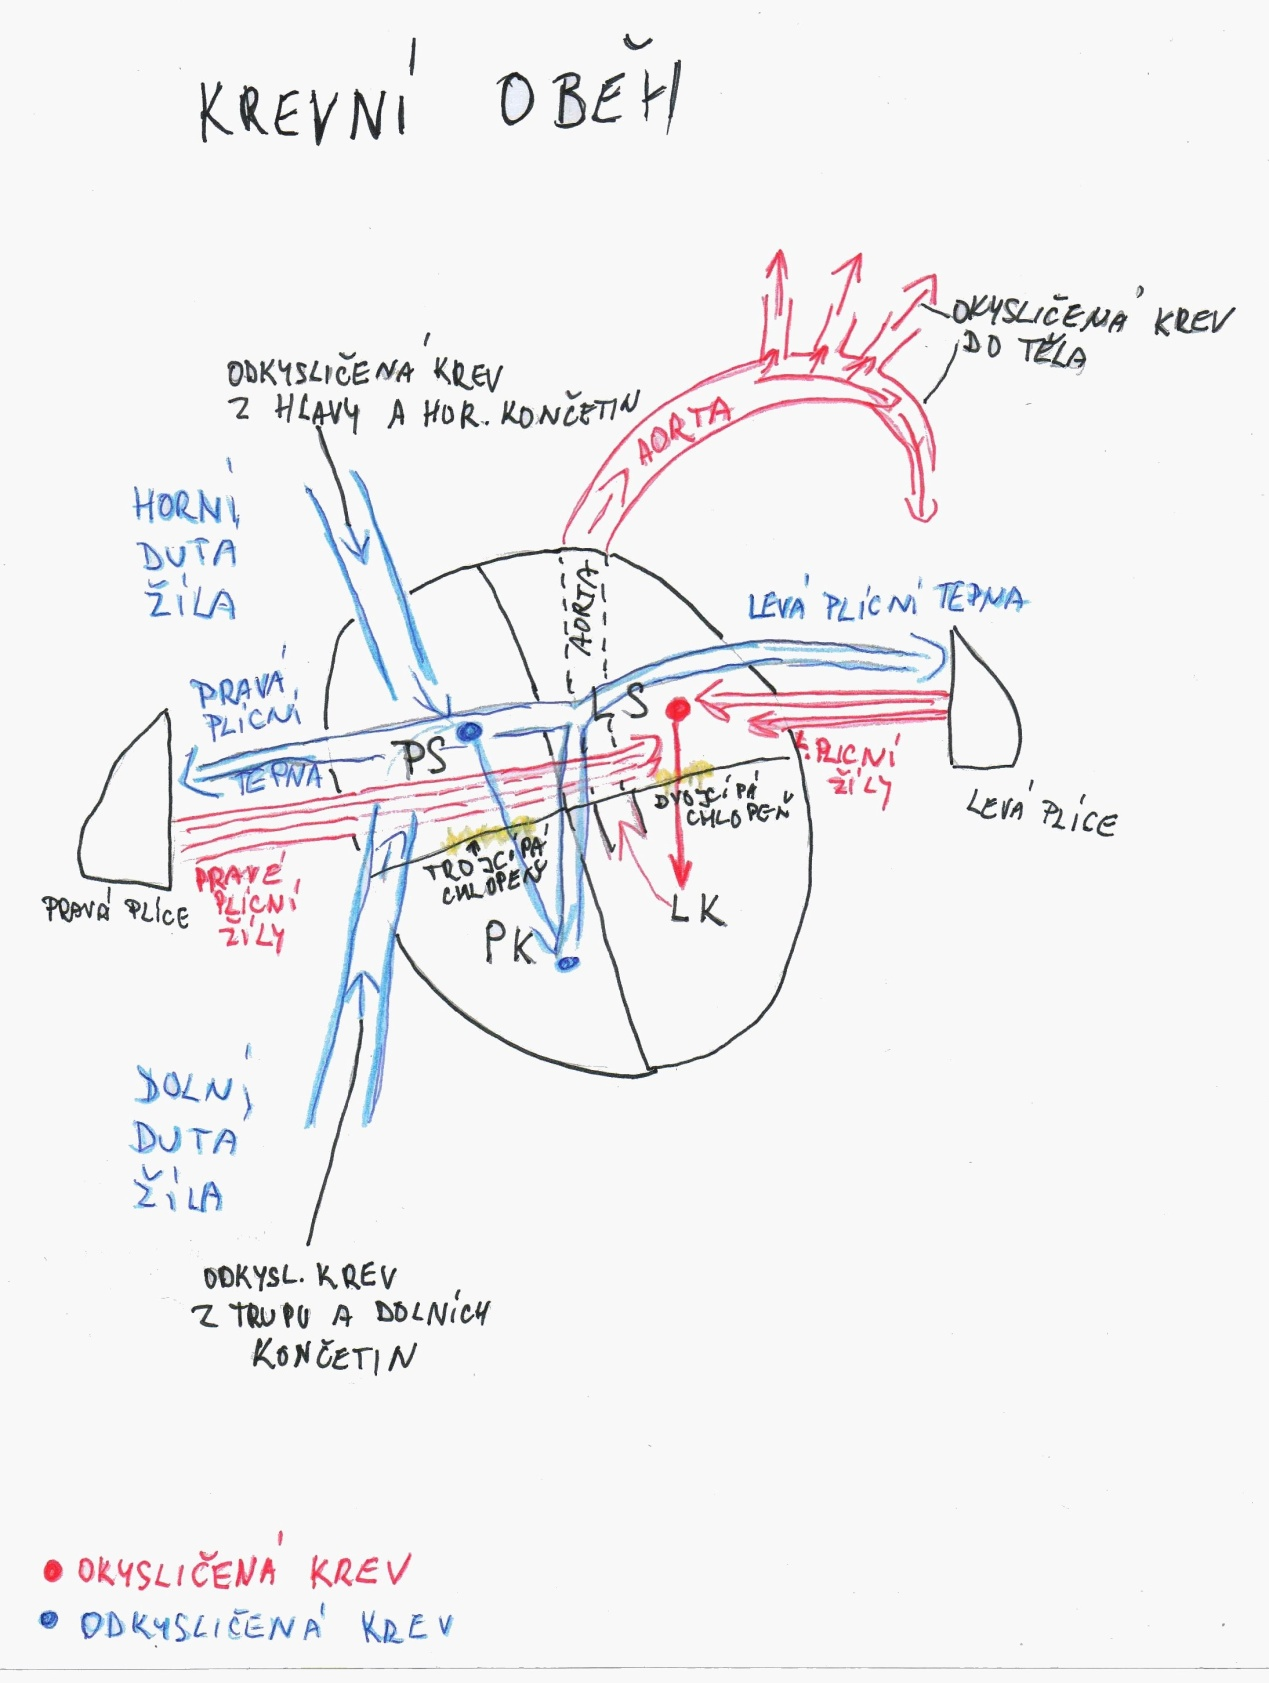 KREVNÍ OBĚH
OKYSLIČENÁ KREV
DO TĚLA
ODKYSLIČENÁ KREV
Z HLAVY A HOR. KONČETIN
AORTA
HORNÍ
DUTÁ
ŽÍLA
AORTA
LEVÁ PLICNÍ TEPNA
PRAVÁ
PLICNÍ
TEPNA
LS
PS
L. PLICNÍ
ŽÍLY
DVOJCÍPÁ
CHLOPEŇ
LEVÁ PLÍCE
TROJCÍPÁ
CHLOPEŇ
PRAVÉ
PLICNÍ
ŽÍLY
PRAVÁ PLÍCE
LK
PK
DOLNÍ
DUTÁ
ŽÍLA
ODKYSL. KREV
Z TRUPU A DOLNÍCH
KONČETIN
OKYSLIČENÁ KREV
ODKYSLIČENÁ KREV